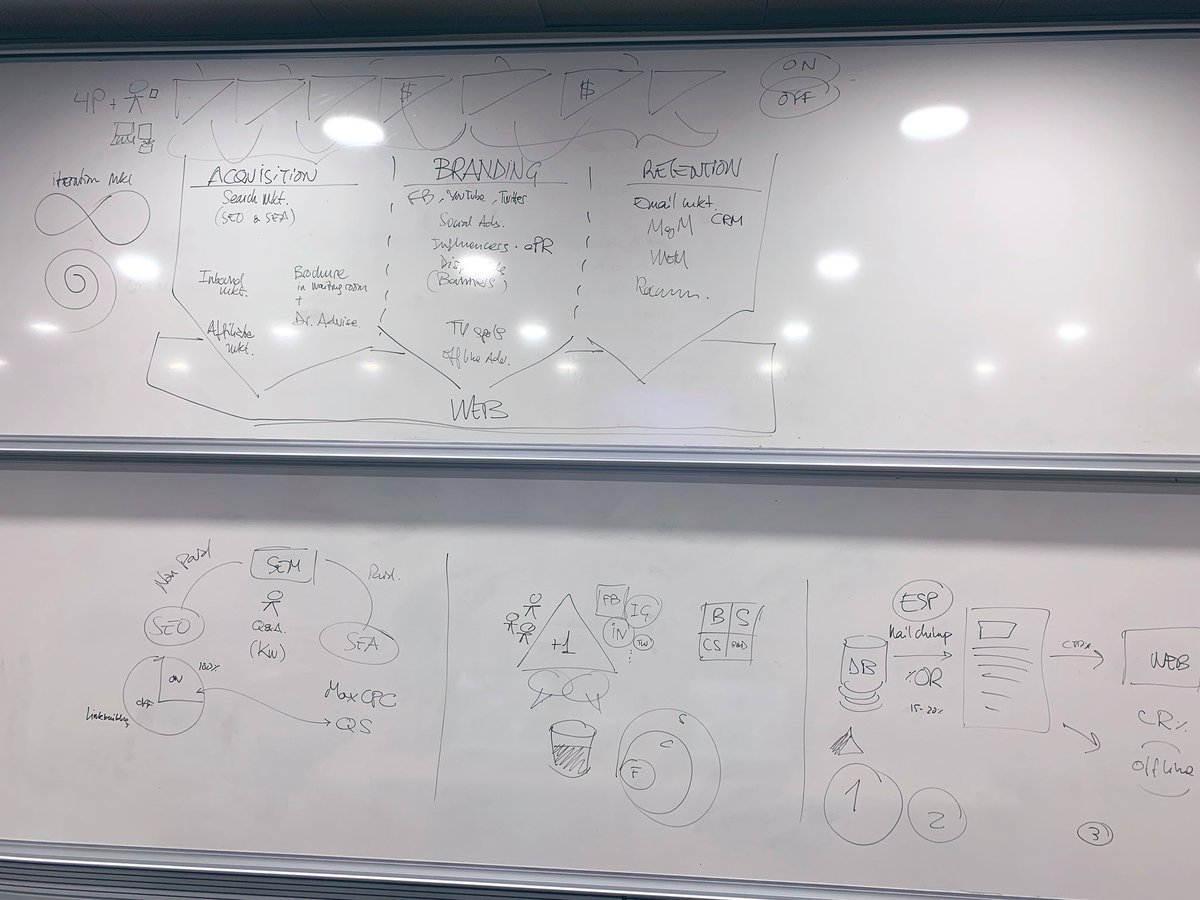 4P +
$
$
ON
OFF
iteration Mkt
ACQUISITION
Search Mkt.
(SEO & SEA)
Inbound
Mkt.
Brochure
in Waiting room
+
Dr. Advise.
Affiliate
Mkt.
BRANDING
FB, YouTube, Twitter
Social Ads.
Influencers. ePR
(Banners)
TV
Offline Adv.
RETENTION
Email Mkt.
MgM CRM
WEB
Non Paid
SEM
Paid.
SEO
Q&A.
(KW)
SEA
100%
ON
OFF
Linkbuilding
Max CPC
QS
+1
FB
IG
iN
TW
B S
CS R&D
S
C
F
ESP
Mailchimp
DB
%OR
15-20%
WEB
CR%
Offline
1
2
3